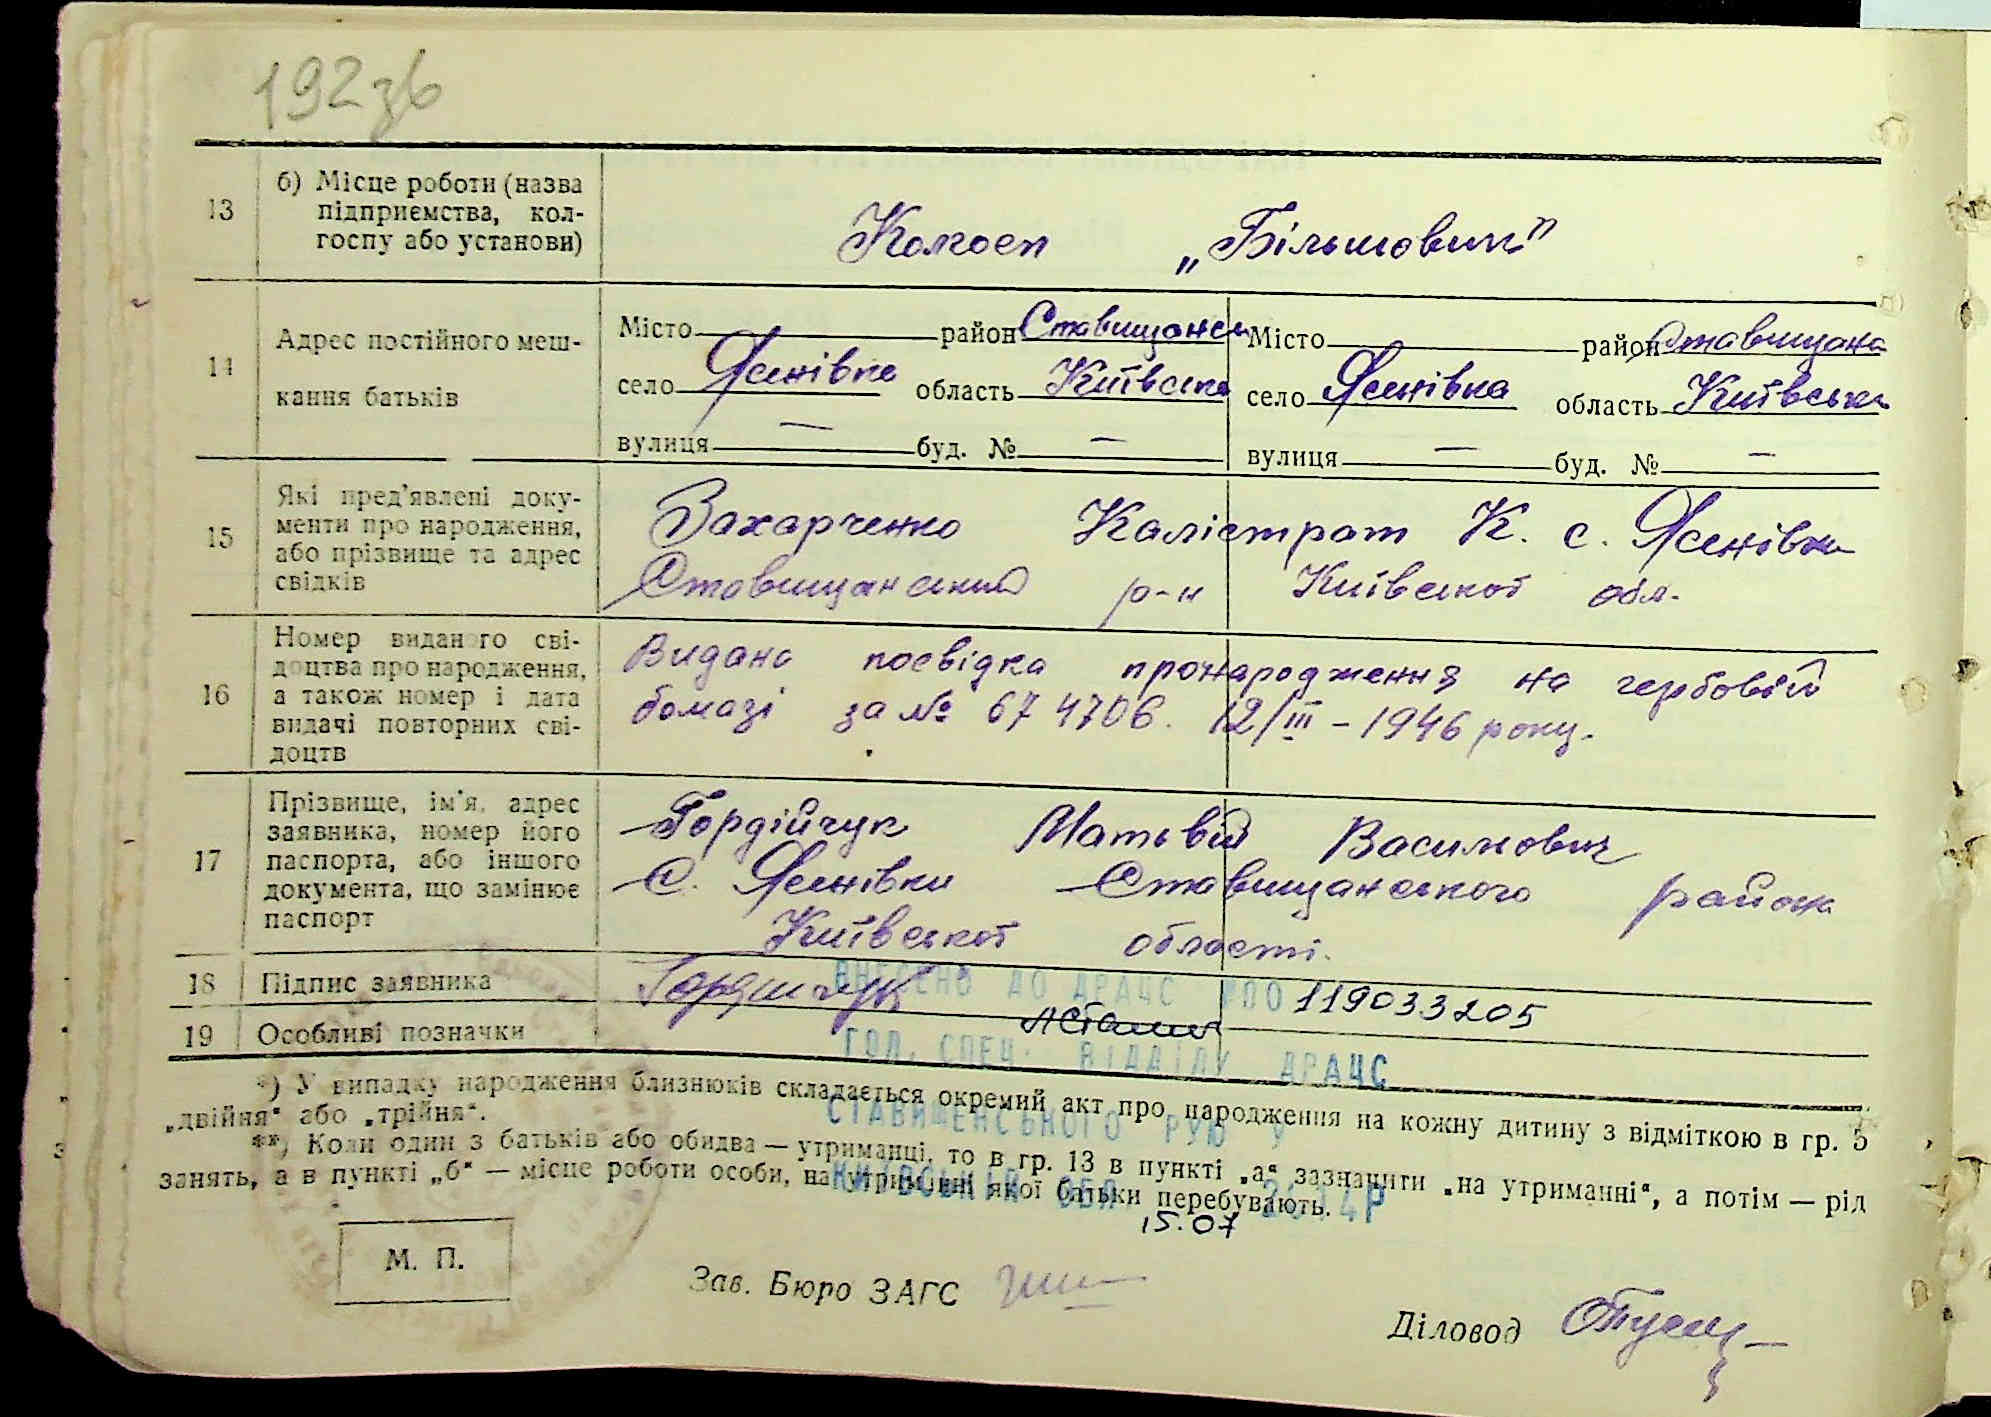 192зв
13 б) Місце роботи (назва
підприємства, кол-
госпу або установи)
Колгосп „Більшовик"
14 Адрес постійного меш-
кання батьків
Місто район Ставищанськ
село Ясенівка область Київська
вулиця — буд. № —
Місто район Ставищанс
село Ясенівка область Київська
вулиця — буд. № —
15 Які пред'явлені доку-
менти про народження,
або прізвище та адрес
свідків
Захарченко Калістрат К. с. Ясенівка
Ставищанський р-н Київської обл.
16 Номер виданого сві-
доцтва про народження,
а також номер і дата
видачі повторних сві-
доцтв
Видано посвідка про народження на гербовій
бомазі за № 674706. 12/III - 1946 року.
17 Прізвище, ім'я, адрес
заявника, номер його
паспорта, або іншого
документа, що замінює
паспорт
Гордійчук Матьвій Василович
с. Ясенівки Ставищанського района
Київської області.
18 Підпис заявника
Гордійчук
19 Особливі позначки
ВНЕСЕНО ДО ДРАЦС РПО 119033205
ГОЛ. СПЕЦ. ВІДДІЛУ ДРАЦС
СТАВИЩЕНСЬКОГО РУЮ У
КИЇВСЬКІЙ ОБЛ. 2014Р
15.07
*) У випадку народження близнюків складається окремий акт про народження на кожну дитину з відміткою в гр. 5
„двійня" або „трійня".
**) Коли один з батьків або обидва — утриманці, то в гр. 13 в пункті „а" зазначити „на утриманні", а потім — рід
занять, а в пункті „б" — місце роботи особи, на утриманні якої батьки перебувають.
М. П.
Зав. Бюро ЗАГС
Діловод